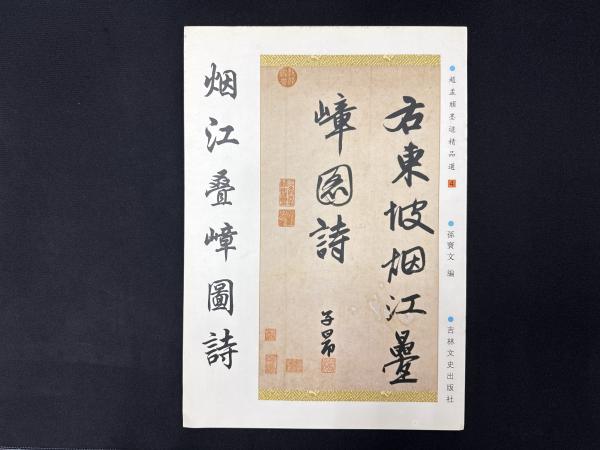 趙孟頫墨迹精品選 4
孫寶文 編
吉林文史出版社
右東坡烟江叠
嶂圖詩
子昂
烟江叠嶂圖詩